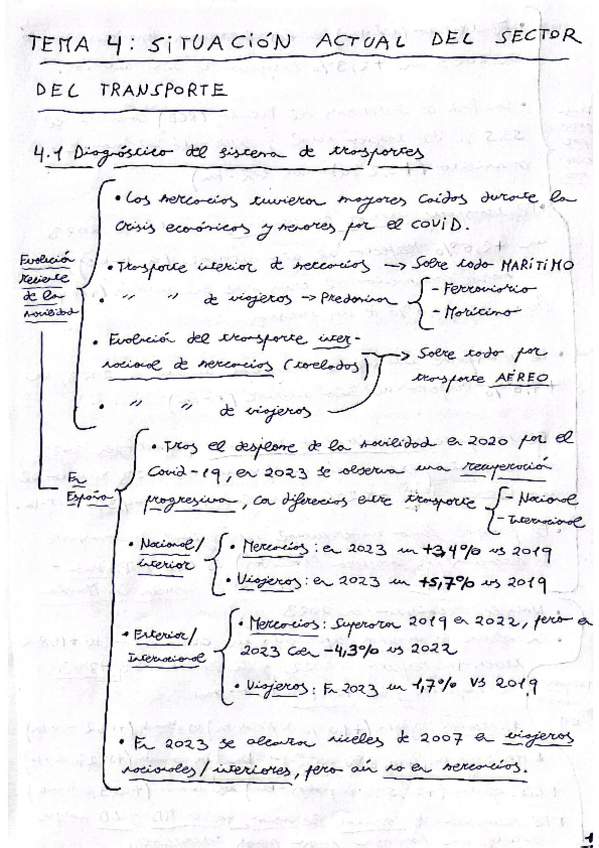 TEMA 4: SITUACIÓN ACTUAL DEL SECTOR
DEL TRANSPORTE
4.1 Diagnóstico del sistema de trasportes
Evolución
reciente
de la
movilidad
• Las mercancías tuvieron mayores caídas durante la
crisis económicas y menores por el COVID.
• Transporte interior de mercancías → Sobre todo MARÍTIMO
• " " de viajeros → Predomina
- Ferroviario
- Marítimo
• Evolución del transporte inter-
nacional de mercancías (toneladas)
• " " de viajeros
→ Sobre todo por
transporte AÉREO
En
España
• Tras el desplome de la movilidad en 2020 por el
Covid-19, en 2023 se observa una recuperación
progresiva, con diferencias entre transporte
- Nacional
- Internacional
• Nacional/
interior
• Mercancías: en 2023 un +3,4% vs 2019
• Viajeros: en 2023 un +5,7% vs 2019
• Exterior/
Internacional
• Mercancías: Superaron 2019 en 2022, pero en
2023 caen -4,3% vs 2022
• Viajeros: En 2023 un 1,7% VS 2019
• En 2023 se alcanzan niveles de 2007 en viajeros
nacionales/interiores, pero aún no en mercancías.
1